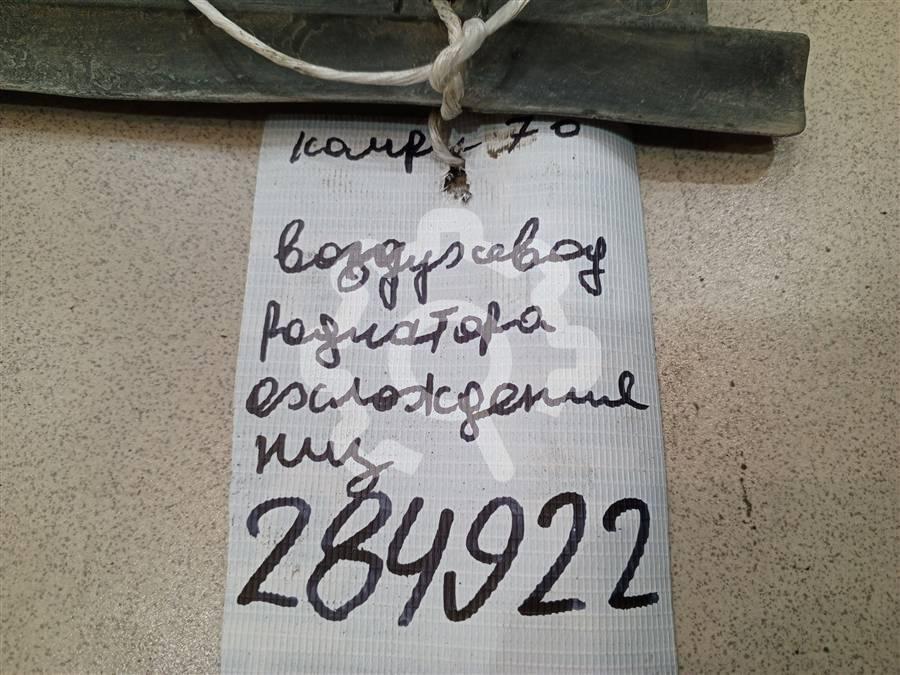 камри 70
воздуховод
радиатора
охлаждения
низ
284922